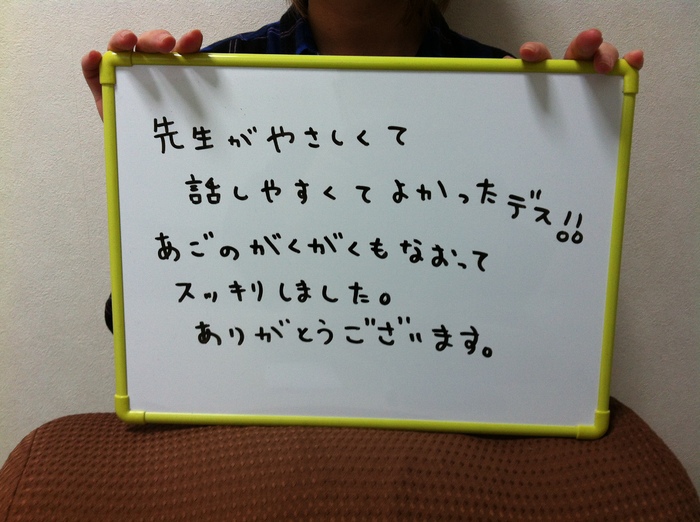 先生がやさしくて
話しやすくてよかったデス!!
あごのがくがくもなおって
スッキリしました。
ありがとうございます。